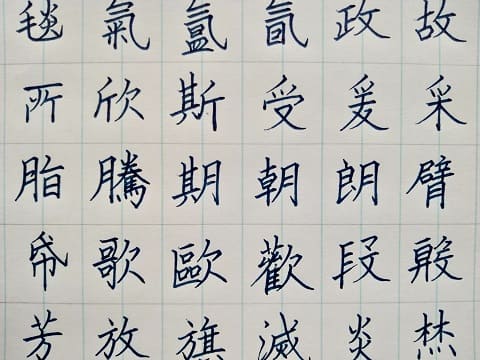 毯氣氳政故
所欣斯受爰采
脂騰期朝朗臂
歌歐歡段
芳放旗滅炎